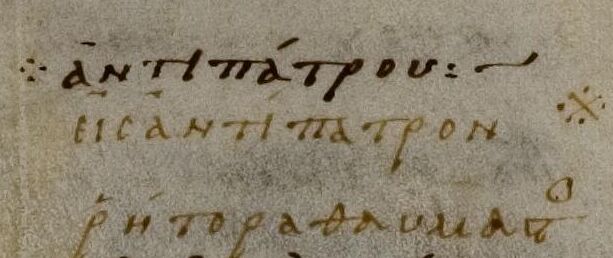 ἀντιπάτρου:
εἰς ἀντίπατρον
ῥήτορα θαυμαστ